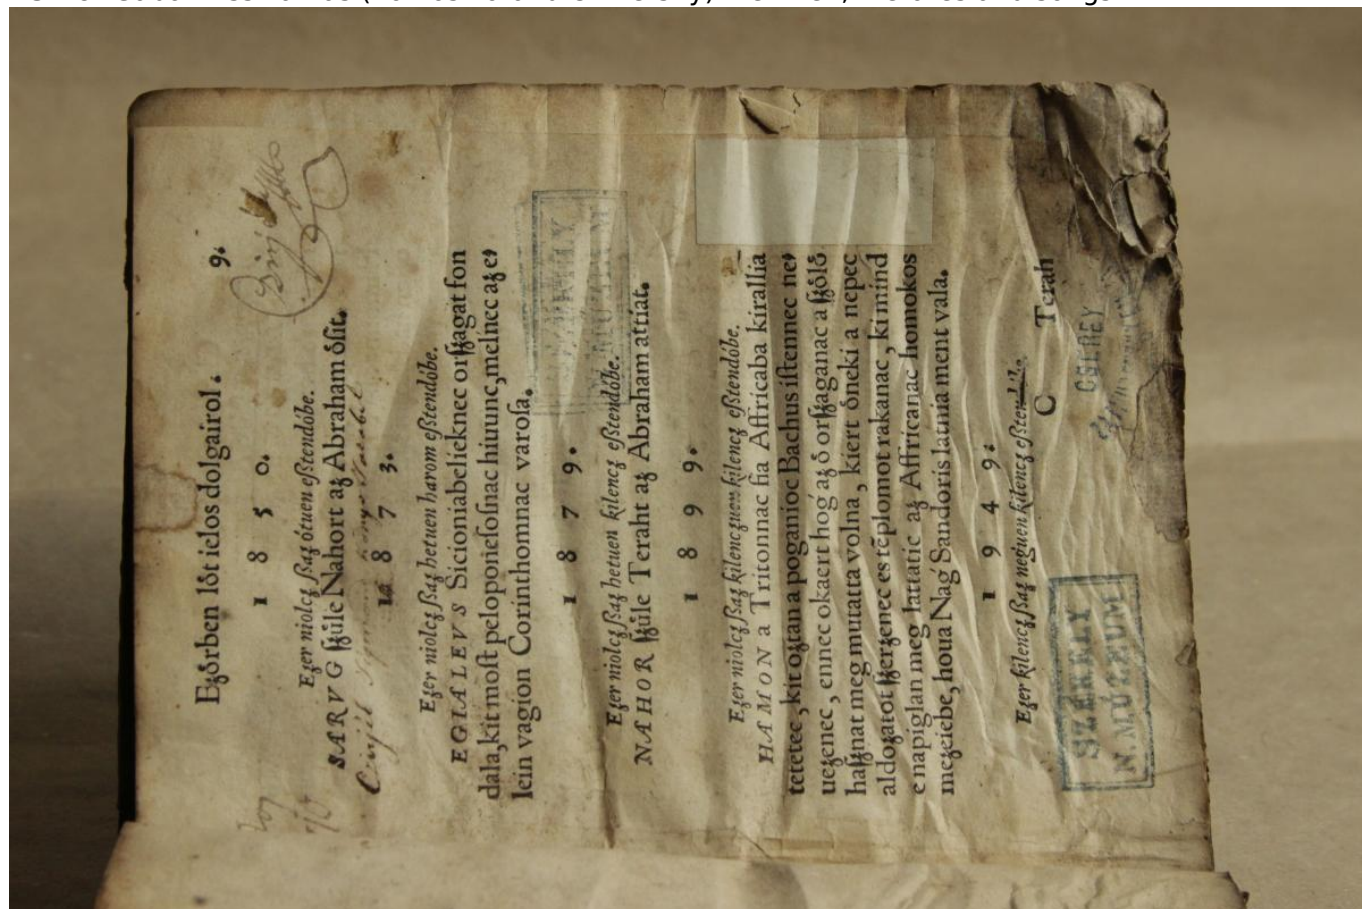 Eʒőrben lőt ielos dolgairol. 9.
1 8 5 0.
Eʒer niolcʒ ſʒaʒ ótuen eſʒtendóbe.
SARVG ſʒüle Nahort aʒ Abraham őſit.
1 8 7 3.
Eʒer niolcʒ ſʒaʒ hetuen harom eſʒtendóbe.
EGIALEVS Sicioniabelieknec orſʒagat fon
dala, kit moſt peloponieſoſnac hiuunc, melnec aʒ e,
lein vagion Corinthomnac varoſa.
1 8 7 9.
Eʒer niolcʒ ſʒaʒ hetuen kilencʒ eſʒtendóbe.
NAHOR ſʒüle Teraht aʒ Abraham attiat.
1 8 9 9.
Eʒer niolcʒ ſʒaʒ kilencʒuen kilencʒ eſʒtendóbe.
HAMON a Tritonnac fia Affricaba kirallia
tetetec, kit oʒtan a poganioc Bachus iſtennec ne,
ueʒenec, ennec okaert hog aʒ ő orſʒaganac aſʒőlő
haſʒnat meg mutatta volna, kiert őneki a nepec
aldoʒatot ſʒerʒenec es tẽplomot rakanac, ki mind
e napiglan meg lattatic aʒ Affricanac homokos
meʒeiebe, houa Nag Sandoris latnia ment vala.
1 9 4 9.
Eʒer kilencʒ ſʒaʒ neguen kilencʒ
C Terah
SZEKELY
N. MÚZEUM